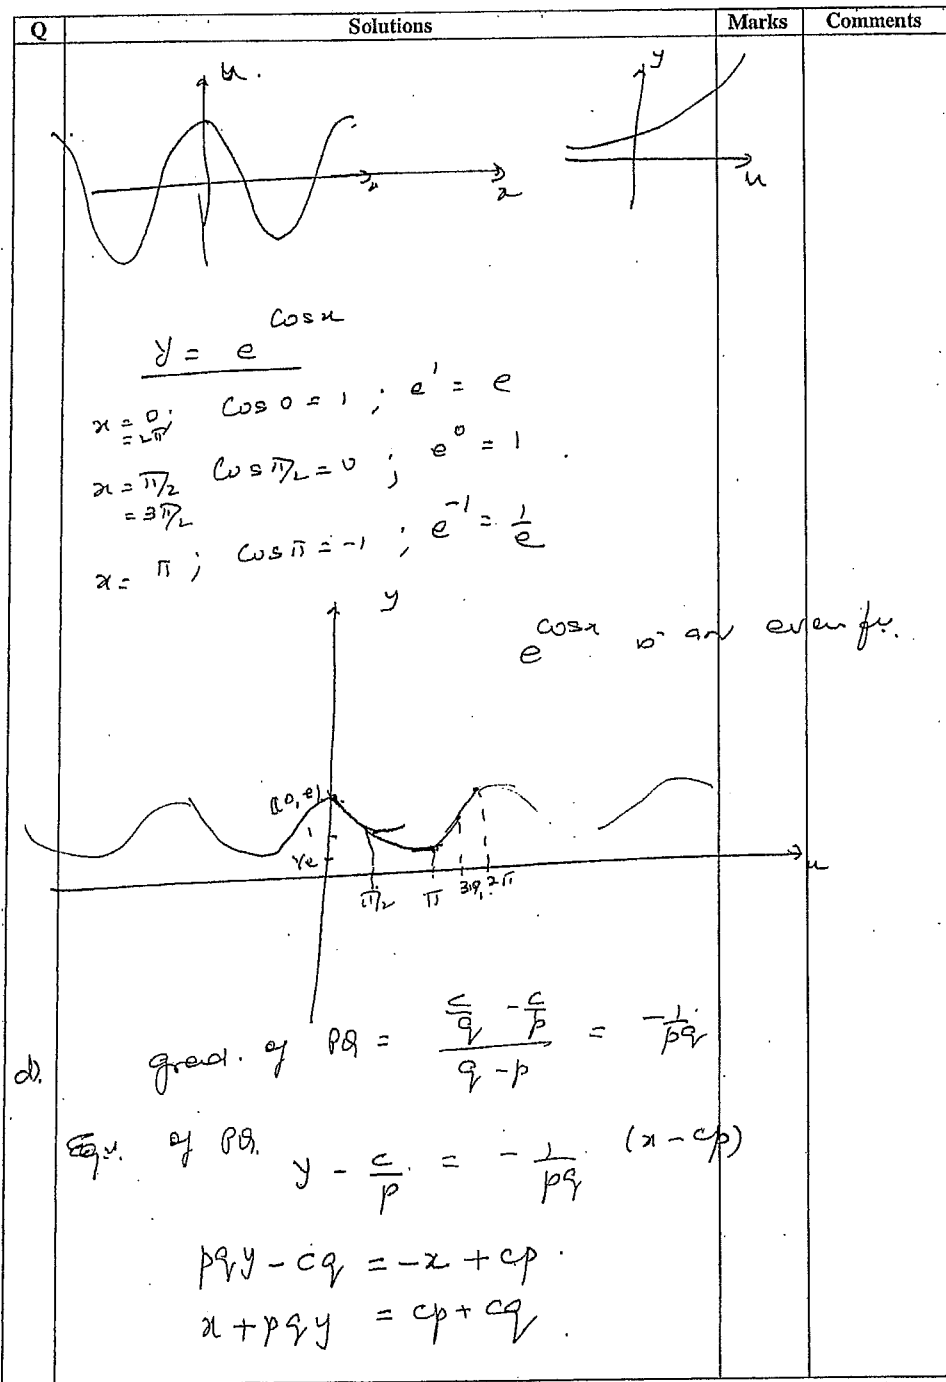 Q Solutions Marks Comments
u. y
x u
y = e^{cos x}
x = 0; cos 0 = 1 ; e^1 = e
= 2π
x = π/2 cos π/2 = 0 ; e^0 = 1 .
= 3π/2
x = π ; cos π = -1 ; e^{-1} = 1/e
y
e^{cos x} is an even fn.
(0, e)
1
1/e
π/2 π 3π/2 2π x
d). grad. of PQ = (c/q - c/p)/(q - p) = -1/pq
Eqn. of PQ. y - c/p = -1/pq (x - cp)
pqy - cq = -x + cp .
x + pqy = cp + cq .